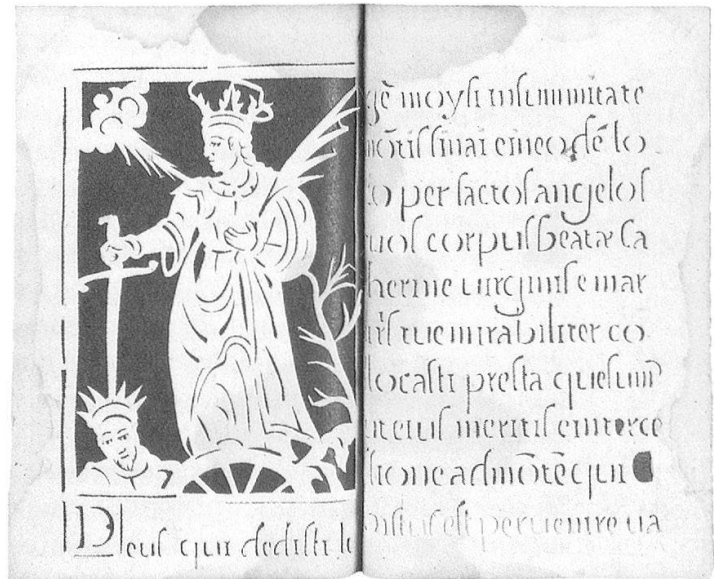 Deus qui dedisti le
gē moysi insummitate
mōtis sinai eineodē lo
co per sactos angelos
tuos corpus beatæ Ca
therine uirginis e mar
tiris tue mirabiliter co
locasti presta quesum̄
ut eius meritis e interce
ssione ad mōtē qui
Xpistus est peruenire ua